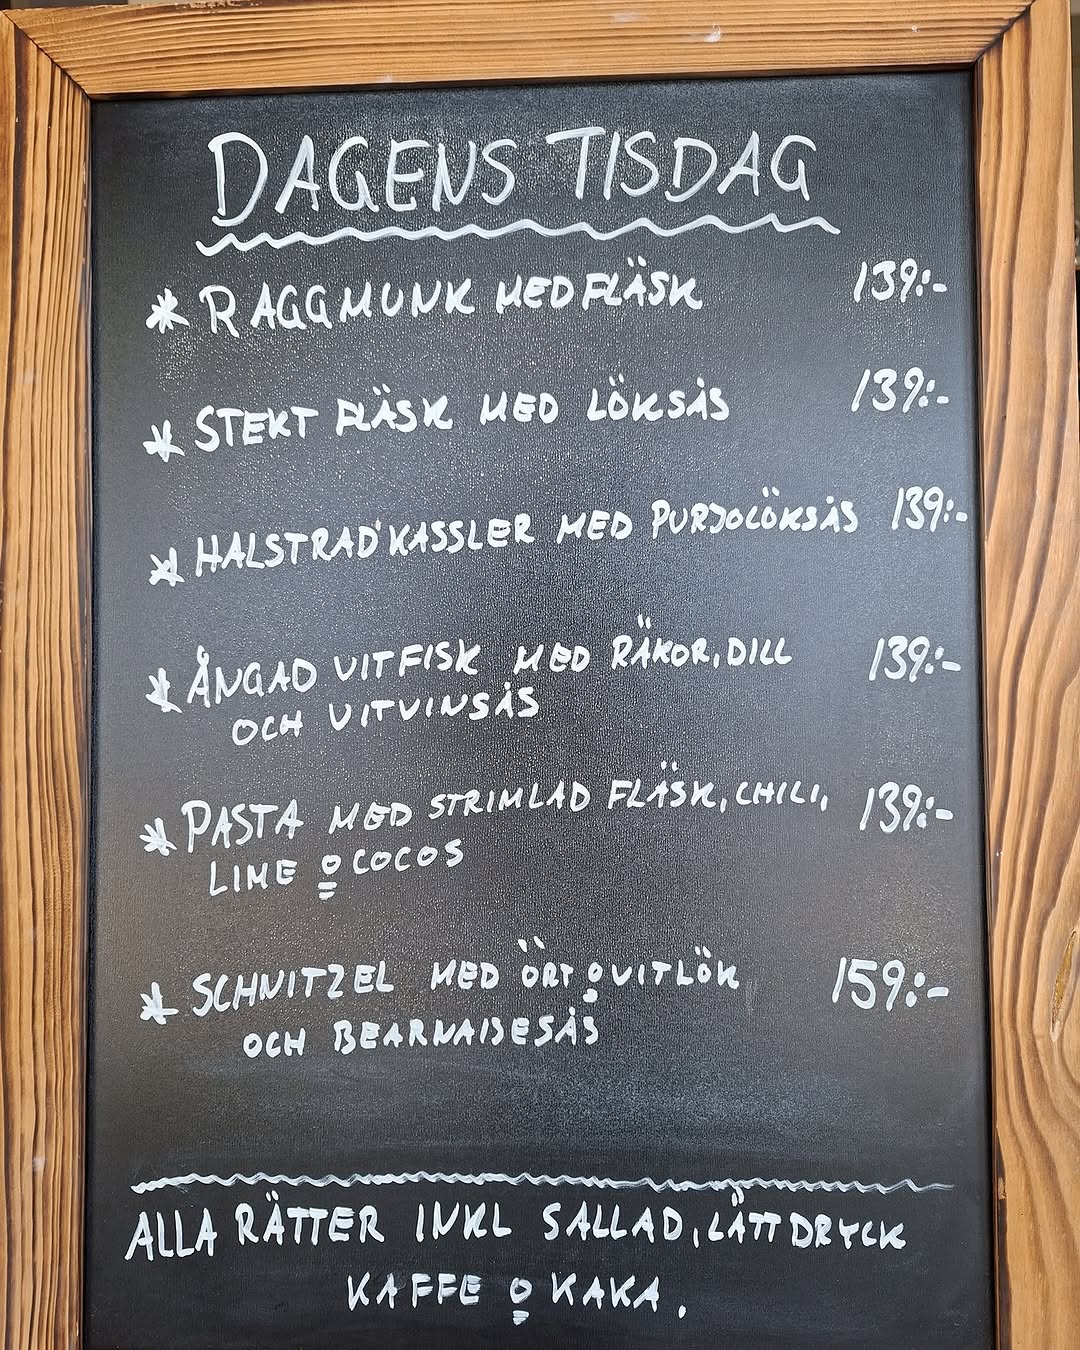 DAGENS TISDAG
* RAGGMUNK MED FLÄSK 139:-
* STEKT FLÄSK MED LÖKSÅS 139:-
* HALSTRAD KASSLER MED PURJOLÖKSÅS 139:-
* ÅNGAD VITFISK MED RÄKOR, DILL 139:-
OCH VITVINSÅS
* PASTA MED STRIMLAD FLÄSK, CHILI, 139:-
LIME o COCOS
* SCHNITZEL MED ÖRT o VITLÖK 159:-
OCH BEARNAISESÅS
ALLA RÄTTER INKL SALLAD, LÄTTDRYCK
KAFFE o KAKA.